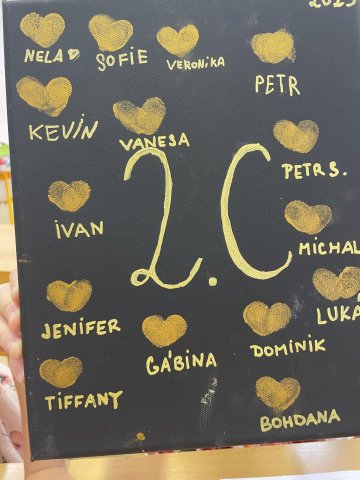 2023
NELA ♡
SOFIE
VERONIKA
PETR
KEVİN
VANESA
PETR S.
İVAN
2.C
MİCHAL
JENİFER
GÁBINA
DOMİNİK
LUKA
TİFFANY
BOHDANA